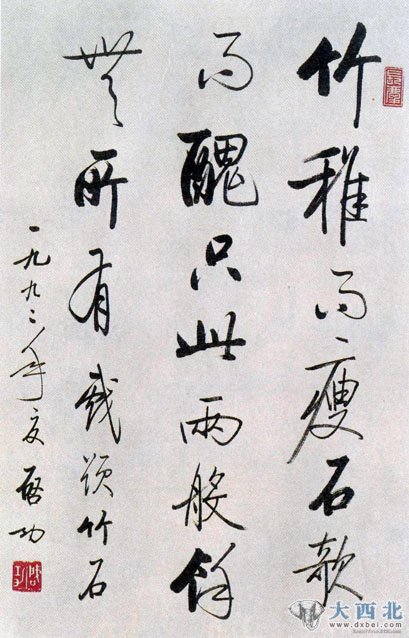 竹稚而瘦石欹
而醜只此兩般餘
無所有戲題竹石
一九九二年夏啓功
大西北
www.dxbei.com